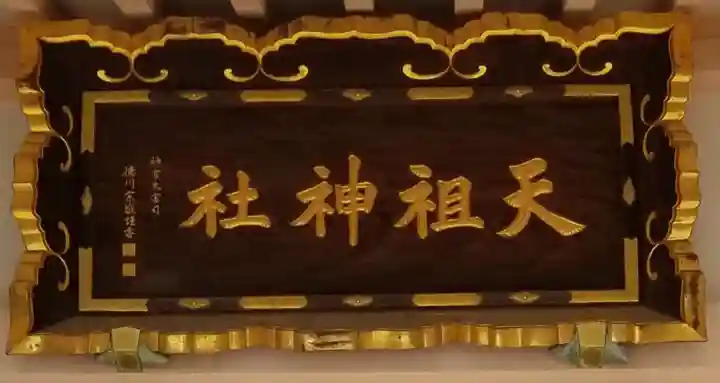 天祖神社
神宮大宮司
徳川宗敬謹書